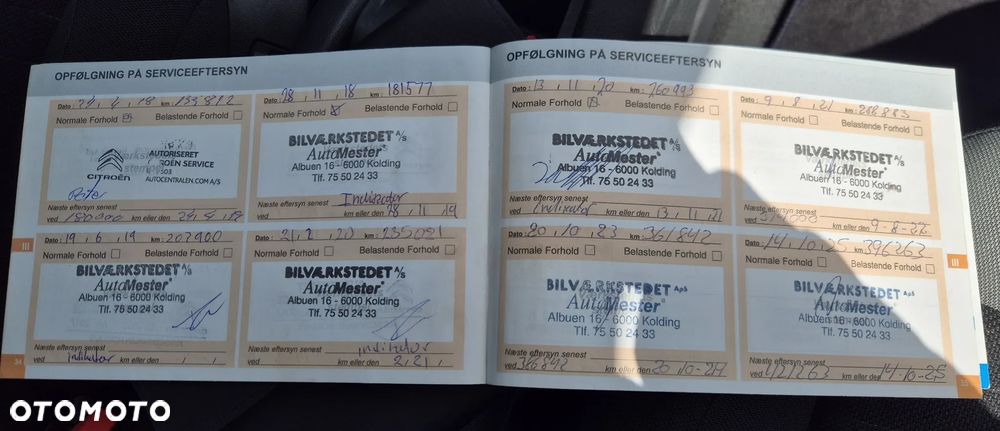 OPFØLGNING PÅ SERVICEEFTERSYN
Dato: 24, 4, 18 km: 153812
Normale Forhold Belastende Forhold
CITROËN
AUTORISERET
CITROËN SERVICE
AUTOCENTRALEN.COM A/S
Næste eftersyn senest
ved 180000 km eller den
Dato: 28, 11, 18 km: 181577
Normale Forhold Belastende Forhold
BILVÆRKSTEDET A/S
AutoMester
Albuen 16 - 6000 Kolding
Tlf. 75 50 24 33
Næste eftersyn senest Indikator
ved km eller den 28, 11, 19
Dato: 19, 6, 19 km: 207900
Normale Forhold Belastende Forhold
BILVÆRKSTEDET A/S
AutoMester
Albuen 16 - 6000 Kolding
Tlf. 75 50 24 33
Næste eftersyn senest
ved Indikator km eller den , ,
Dato: 21, 2, 20 km: 235021
Normale Forhold Belastende Forhold
BILVÆRKSTEDET A/S
AutoMester
Albuen 16 - 6000 Kolding
Tlf. 75 50 24 33
Næste eftersyn senest indikator
ved km eller den 2, 21,
34
III
OPFØLGNING PÅ SERVICEEFTERSYN
Dato: 13, 11, 20 km: 260993
Normale Forhold Belastende Forhold
BILVÆRKSTEDET A/S
AutoMester
Albuen 16 - 6000 Kolding
Tlf. 75 50 24 33
Næste eftersyn senest
ved Indikator km eller den 13, 11, 21
Dato: 9, 8, 21 km:
Normale Forhold Belastende Forhold
BILVÆRKSTEDET A/S
AutoMester
Albuen 16 - 6000 Kolding
Tlf. 75 50 24 33
Næste eftersyn senest
ved km eller den 9-8-22
Dato: 20, 10, 23 km: 361842
Normale Forhold Belastende Forhold
BILVÆRKSTEDET ApS
AutoMester
Albuen 16 - 6000 Kolding
Tlf. 75 50 24 33
Næste eftersyn senest
ved 386842 km eller den 20-10-24
Dato: 14, 10, 25 km: 396263
Normale Forhold Belastende Forhold
BILVÆRKSTEDET ApS
AutoMester
Albuen 16 - 6000 Kolding
Tlf. 75 50 24 33
Næste eftersyn senest
ved km eller den 14-10-25
III
35
OTOMOTO